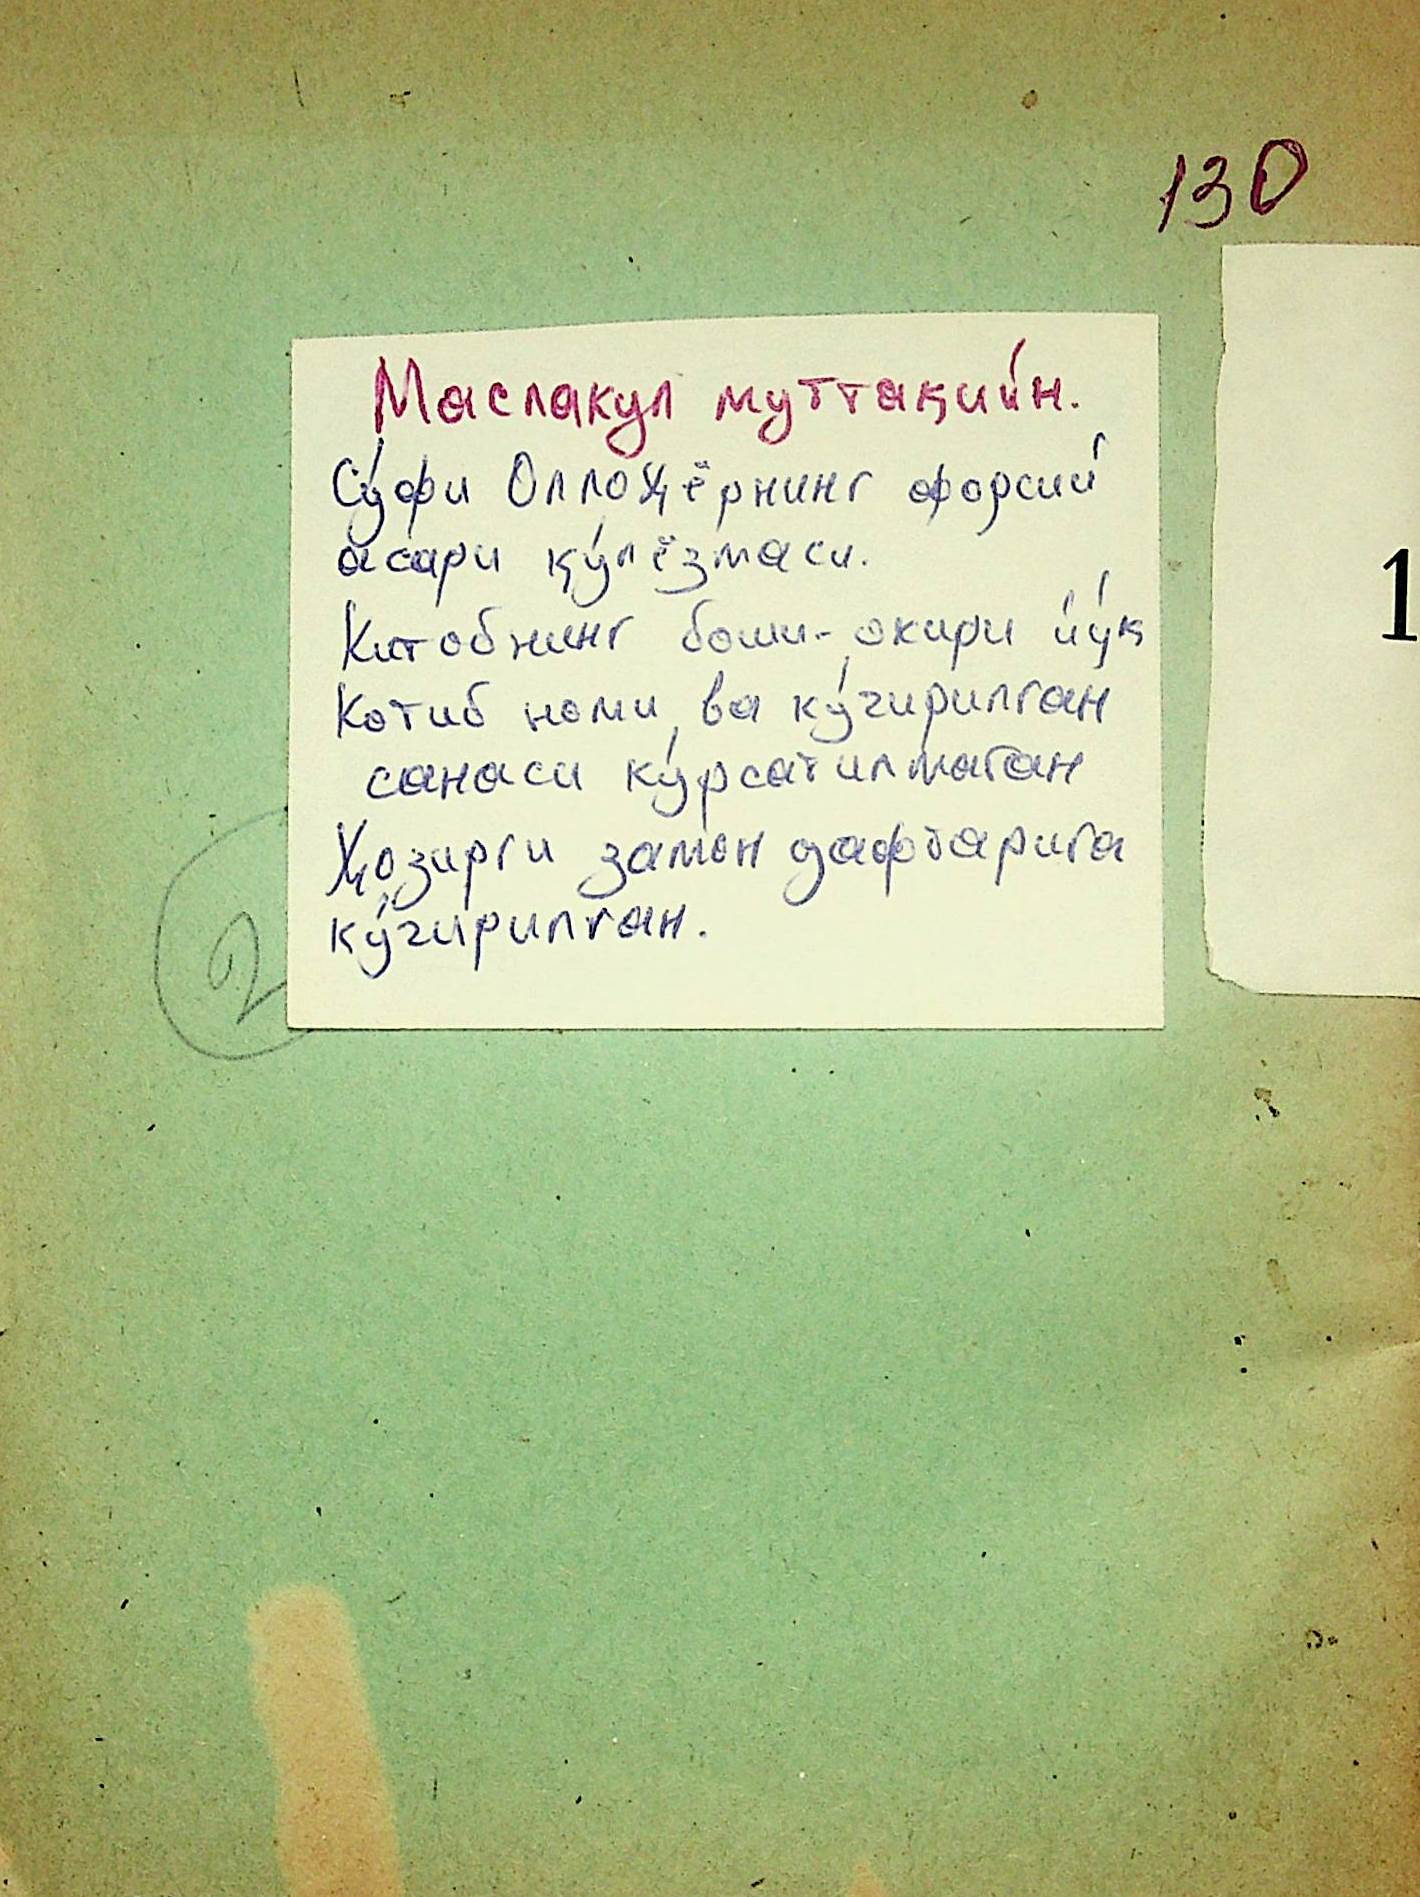 130
Маслакул муттақийн.
Сўфи Оллоҳёрнинг форсий
асари қўлёзмаси.
Китобнинг боши-охири йўқ
Котиб номи ва кўчирилган
санаси кўрсатилмаган
Ҳозирги замон дафтарига
кўчирилган.
1
2